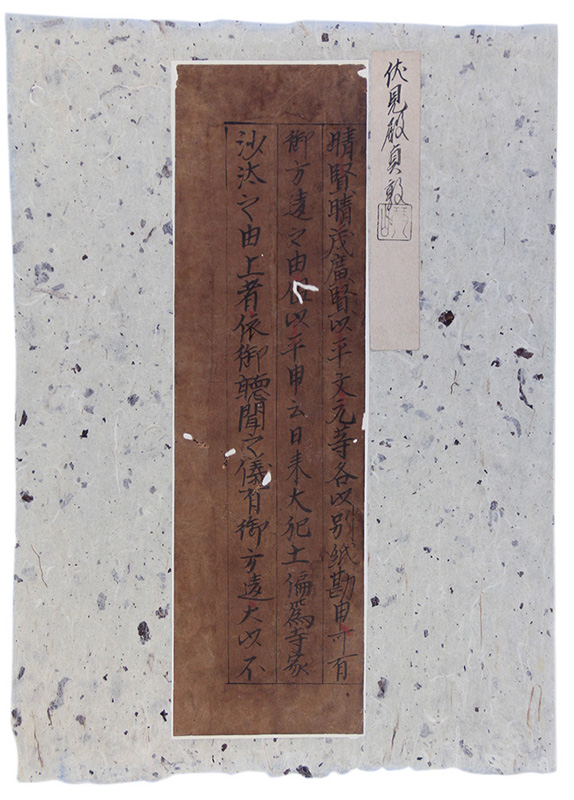 伏見殿貞敦
晴賢晴茂廣賢以平文元等各以別紙勘申可有
御方違之由 以平申云日来大犯土偏為寺家
沙汰之由上者依御聴聞之儀有御方違大以不